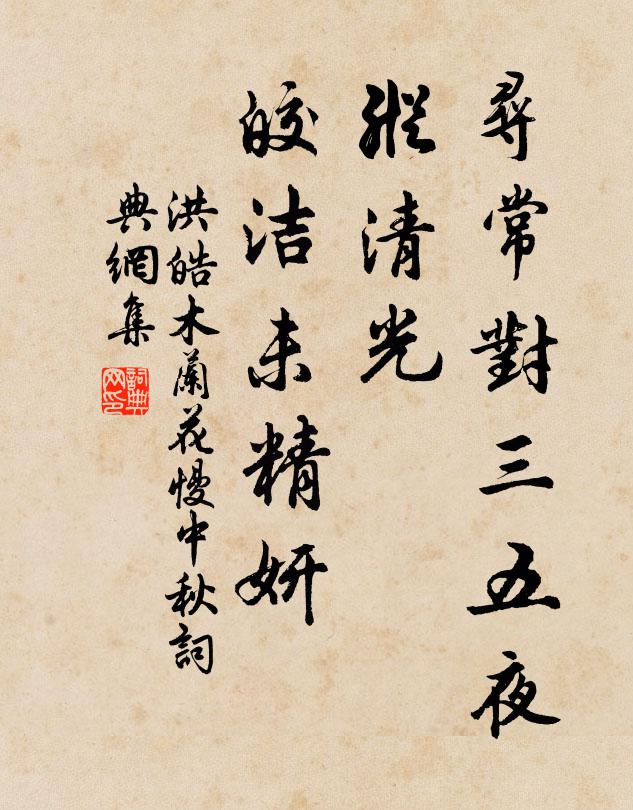 尋常對三五夜
縱清光
皎洁未精妍
洪皓木蘭花慢中秋詞
典網集
詞典
网印